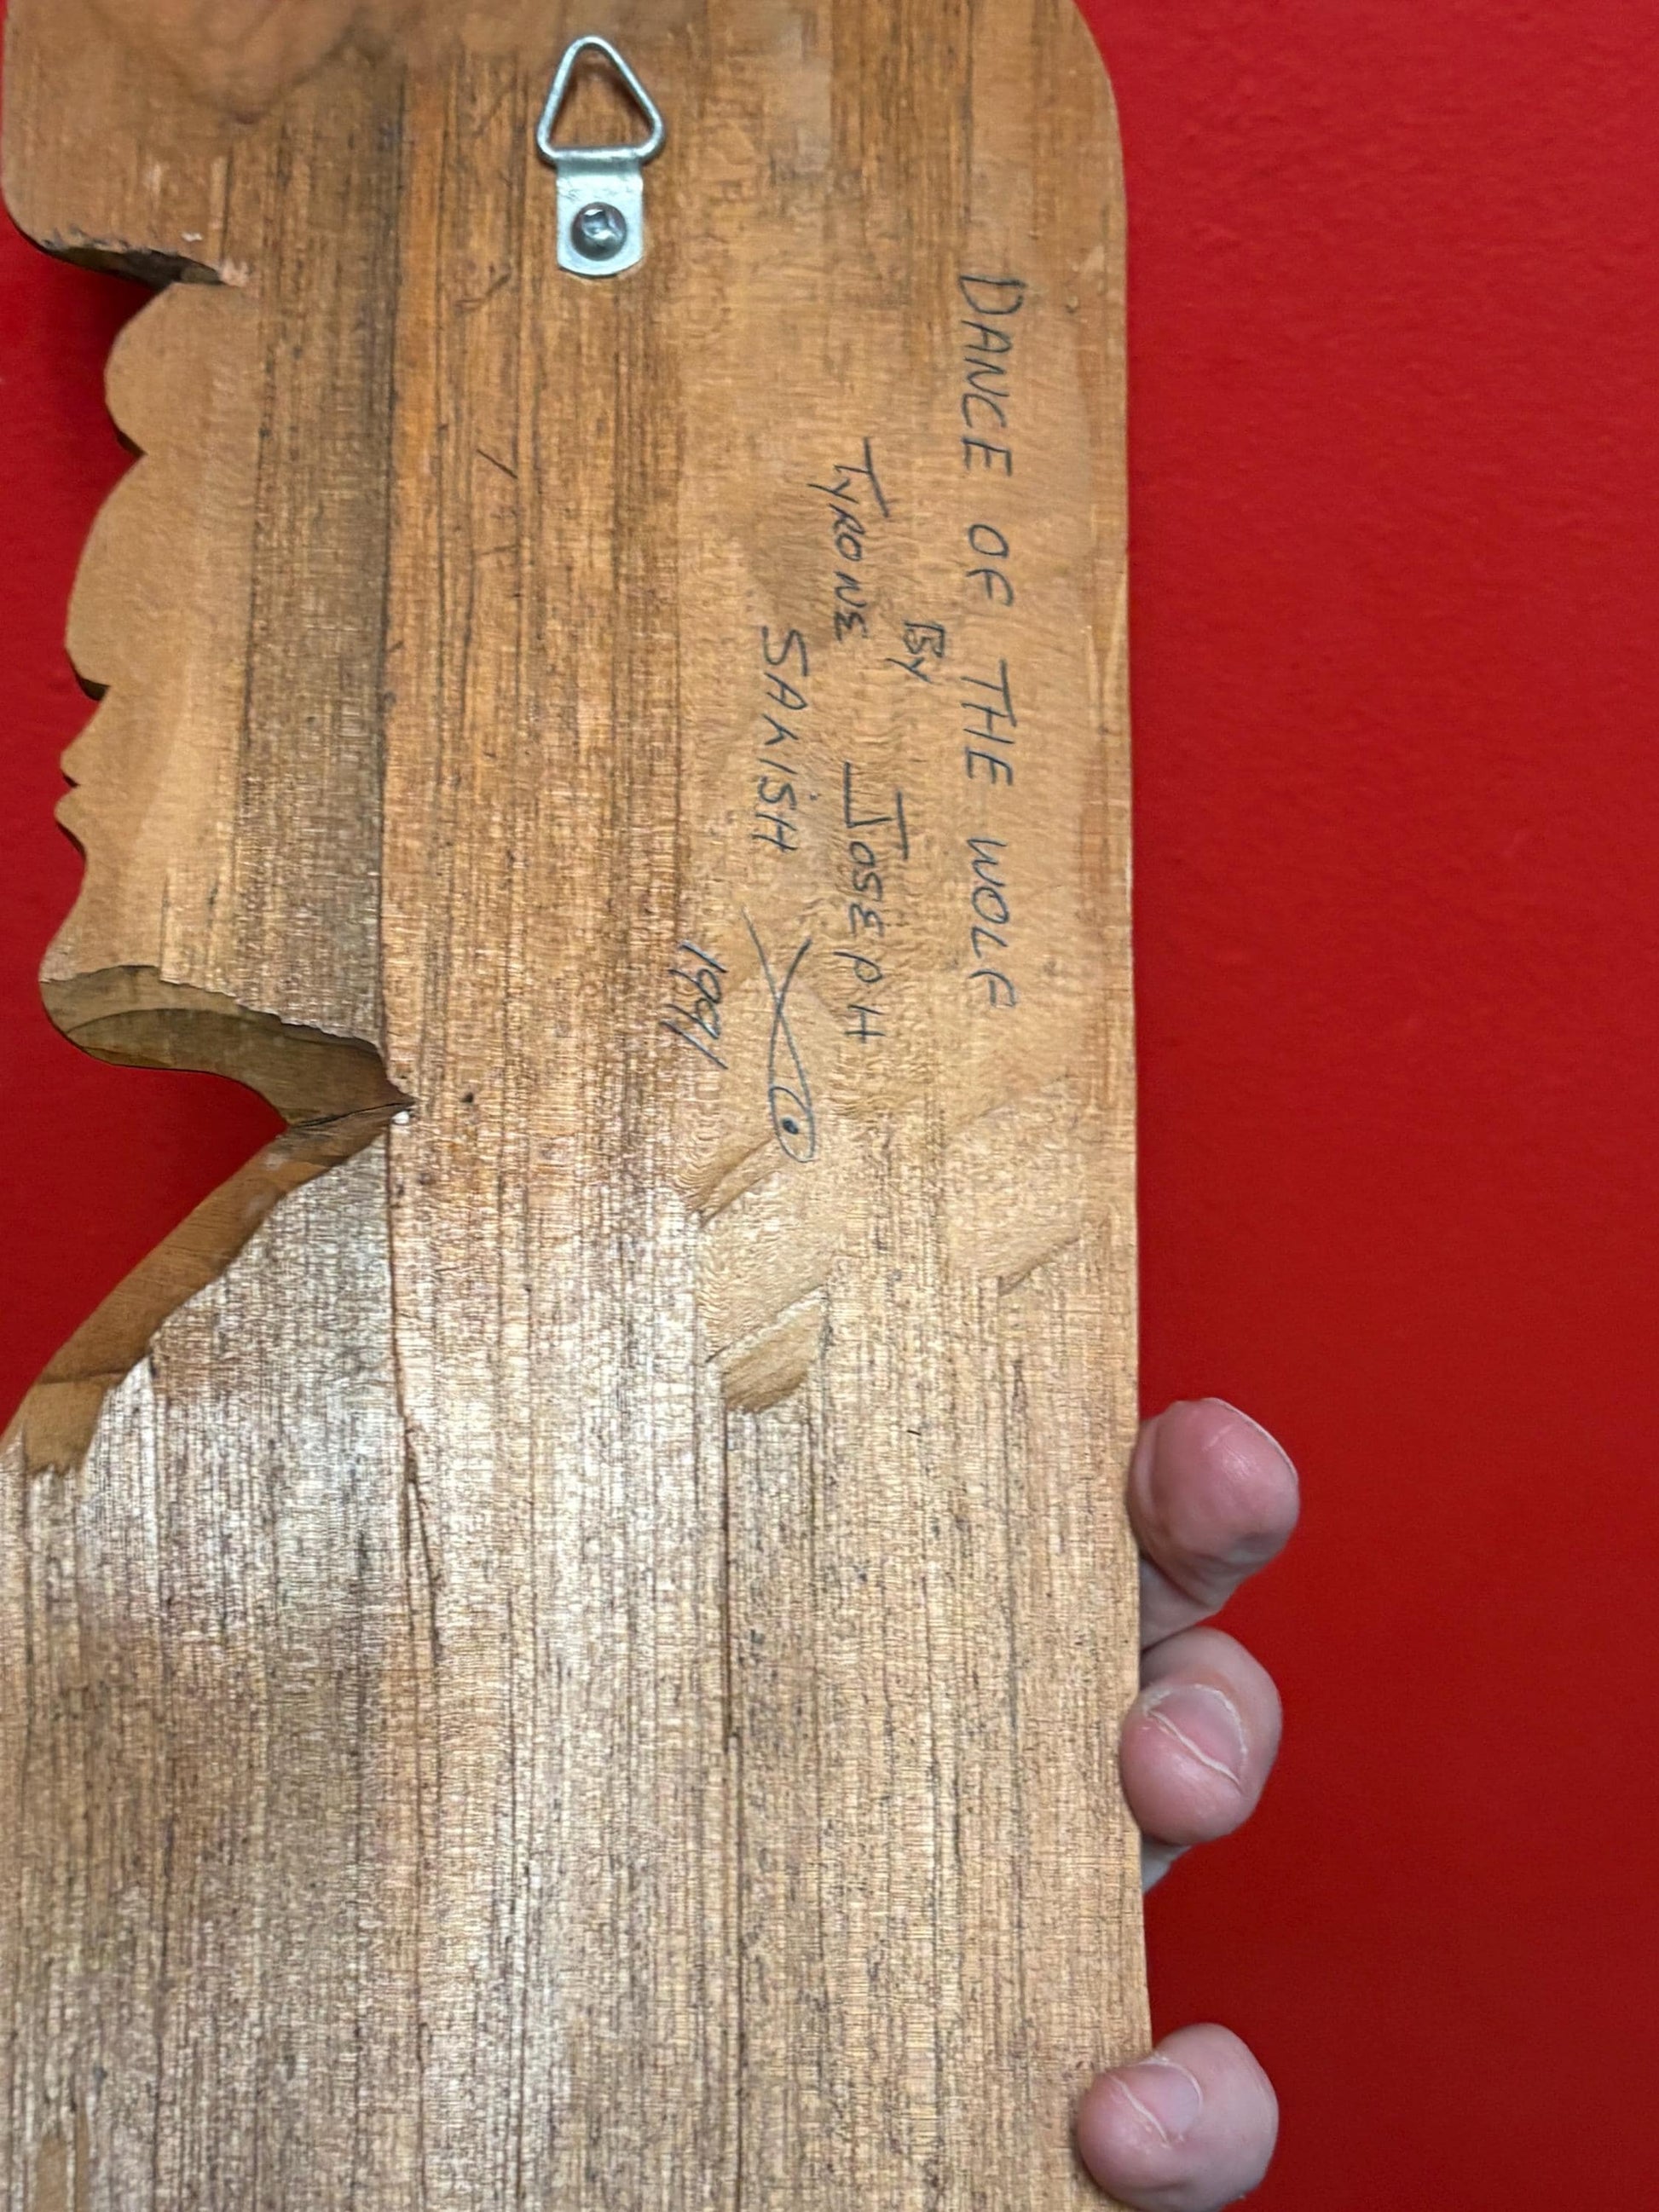 DANCE OF THE WOLF
By
TYRONE JOSEPH
SAλISH
1991